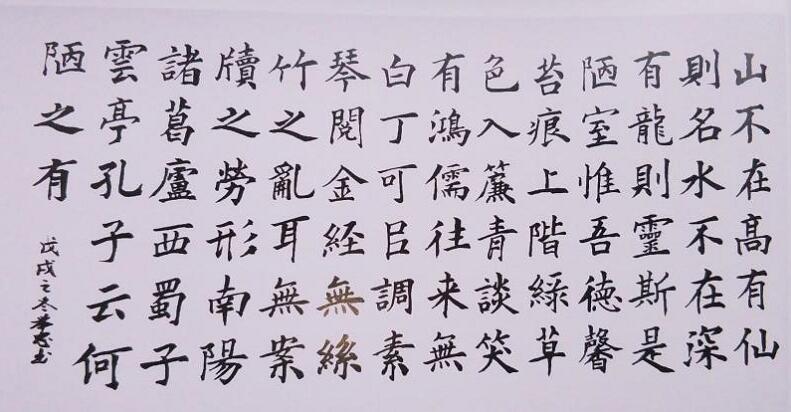 山不在高有仙
則名水不在深
有龍則靈斯是
陋室惟吾德馨
苔痕上階綠草
色入簾青談笑
有鴻儒往来無
白丁可㠯調素
琴閱金経無絲
竹之亂耳無案
牘之勞形南陽
諸葛廬西蜀子
雲亭孔子云何
陋之有
戊戌之冬